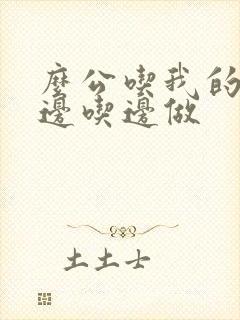 麼公喫我的
邊喫邊做
土土士